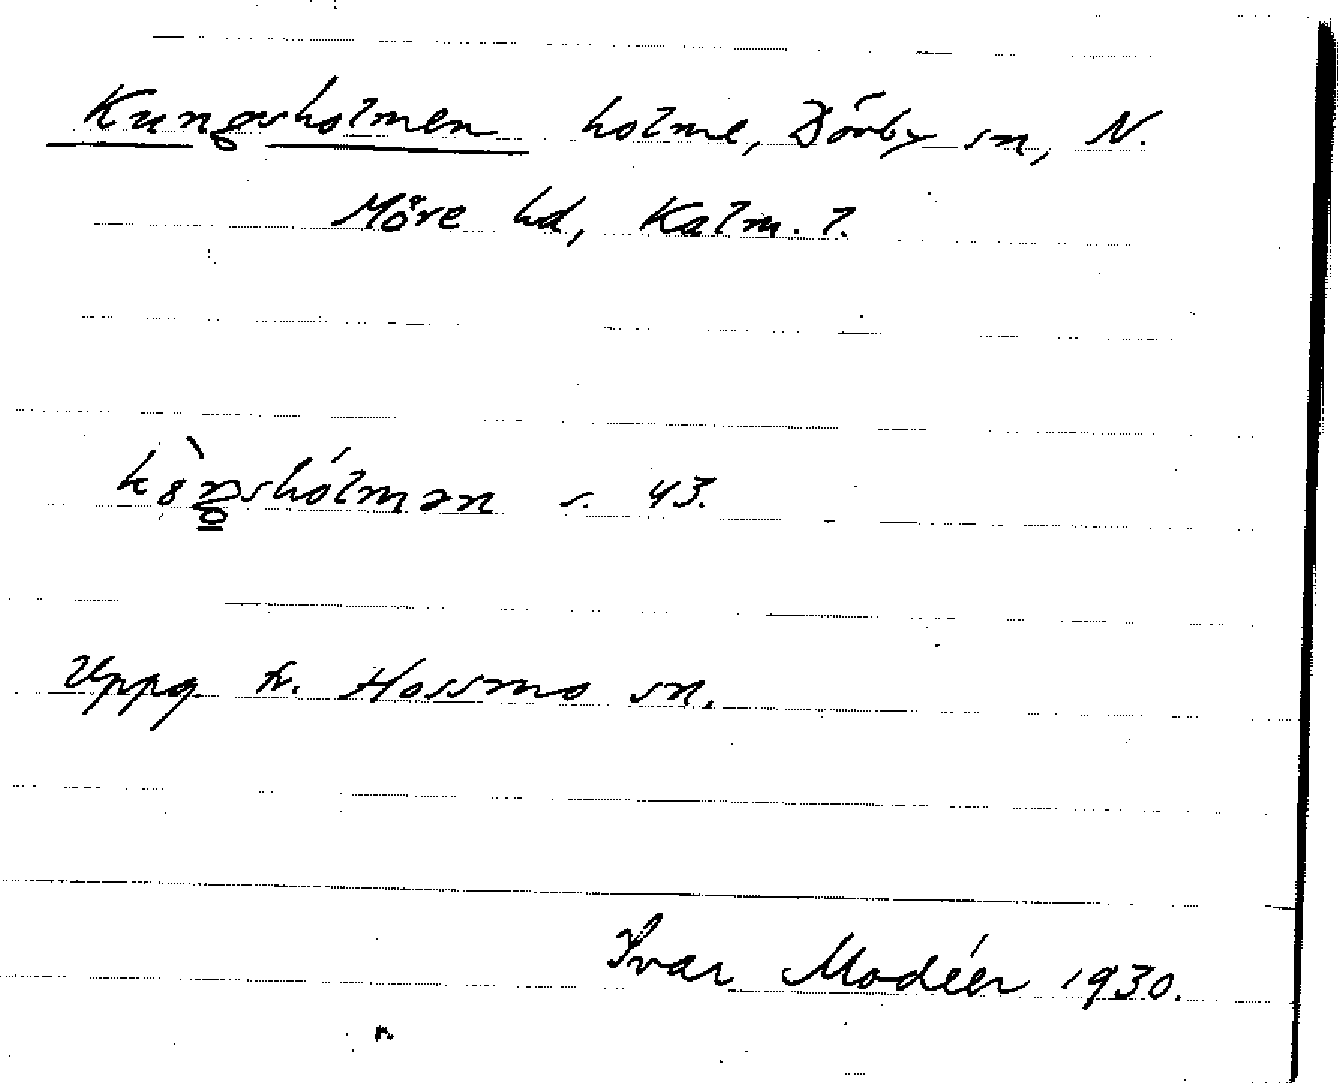 Kungsholmen holme, Dörby sn, N.
Möre hd, Kalm. l.
s. 43.
Uppg fr. Hossmo sn.
Ivar Modéer 1930.